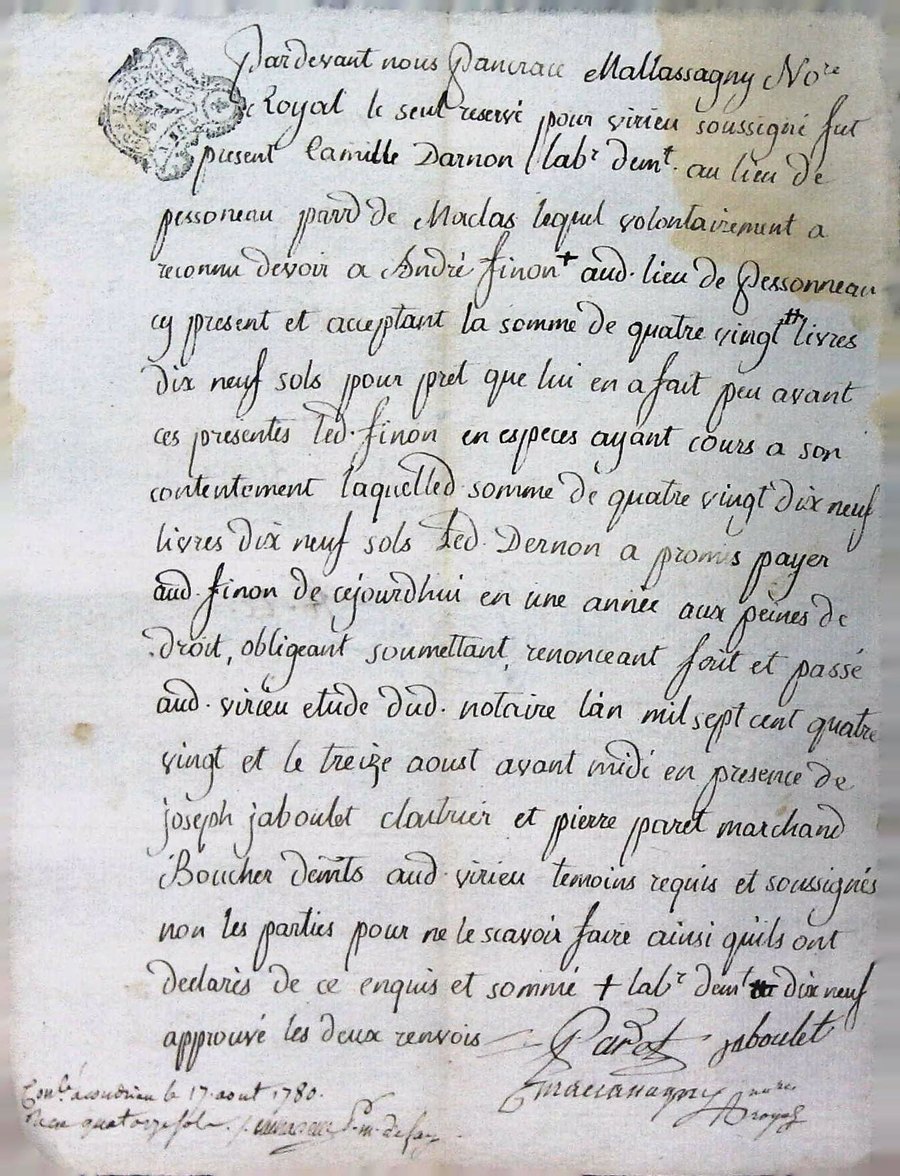 Pardevant nous Pancrace Mallassagny No.re
Royal le seul reservé pour virieu soussigné fut
present Camille Darnon lab.r dem.t au lieu de
pessoneau parr.d de Maclas lequel volontairement a
reconnu devoir a André finon + aud. lieu de Pessonneau
cy present et acceptant la somme de quatre vingt # livres
dix neuf sols pour pret que lui en a fait peu avant
ces presentes led. finon en especes ayant cours a son
contentement laquelled. somme de quatre vingt dix neuf
livres dix neuf sols led. Dernon a promis payer
aud. finon de cejourdhui en une année aux peines de
droit, obligeant soumettant, renonceant fait et passé
aud. virieu etude dud. notaire l'an mil sept cent quatre
vingt et le treize aoust avant midi en presence de
joseph jaboulet et pierre paret marchand
Boucher demts aud. virieu temoins requis et soussignés
non les parties pour ne le scavoir faire ainsi quils ont
declarés de ce enquis et sommé + lab.r dem.t # dix neuf
approuvé les deux renvois
Paret jaboulet
le 17. aout 1780.
quatorze sols
royal